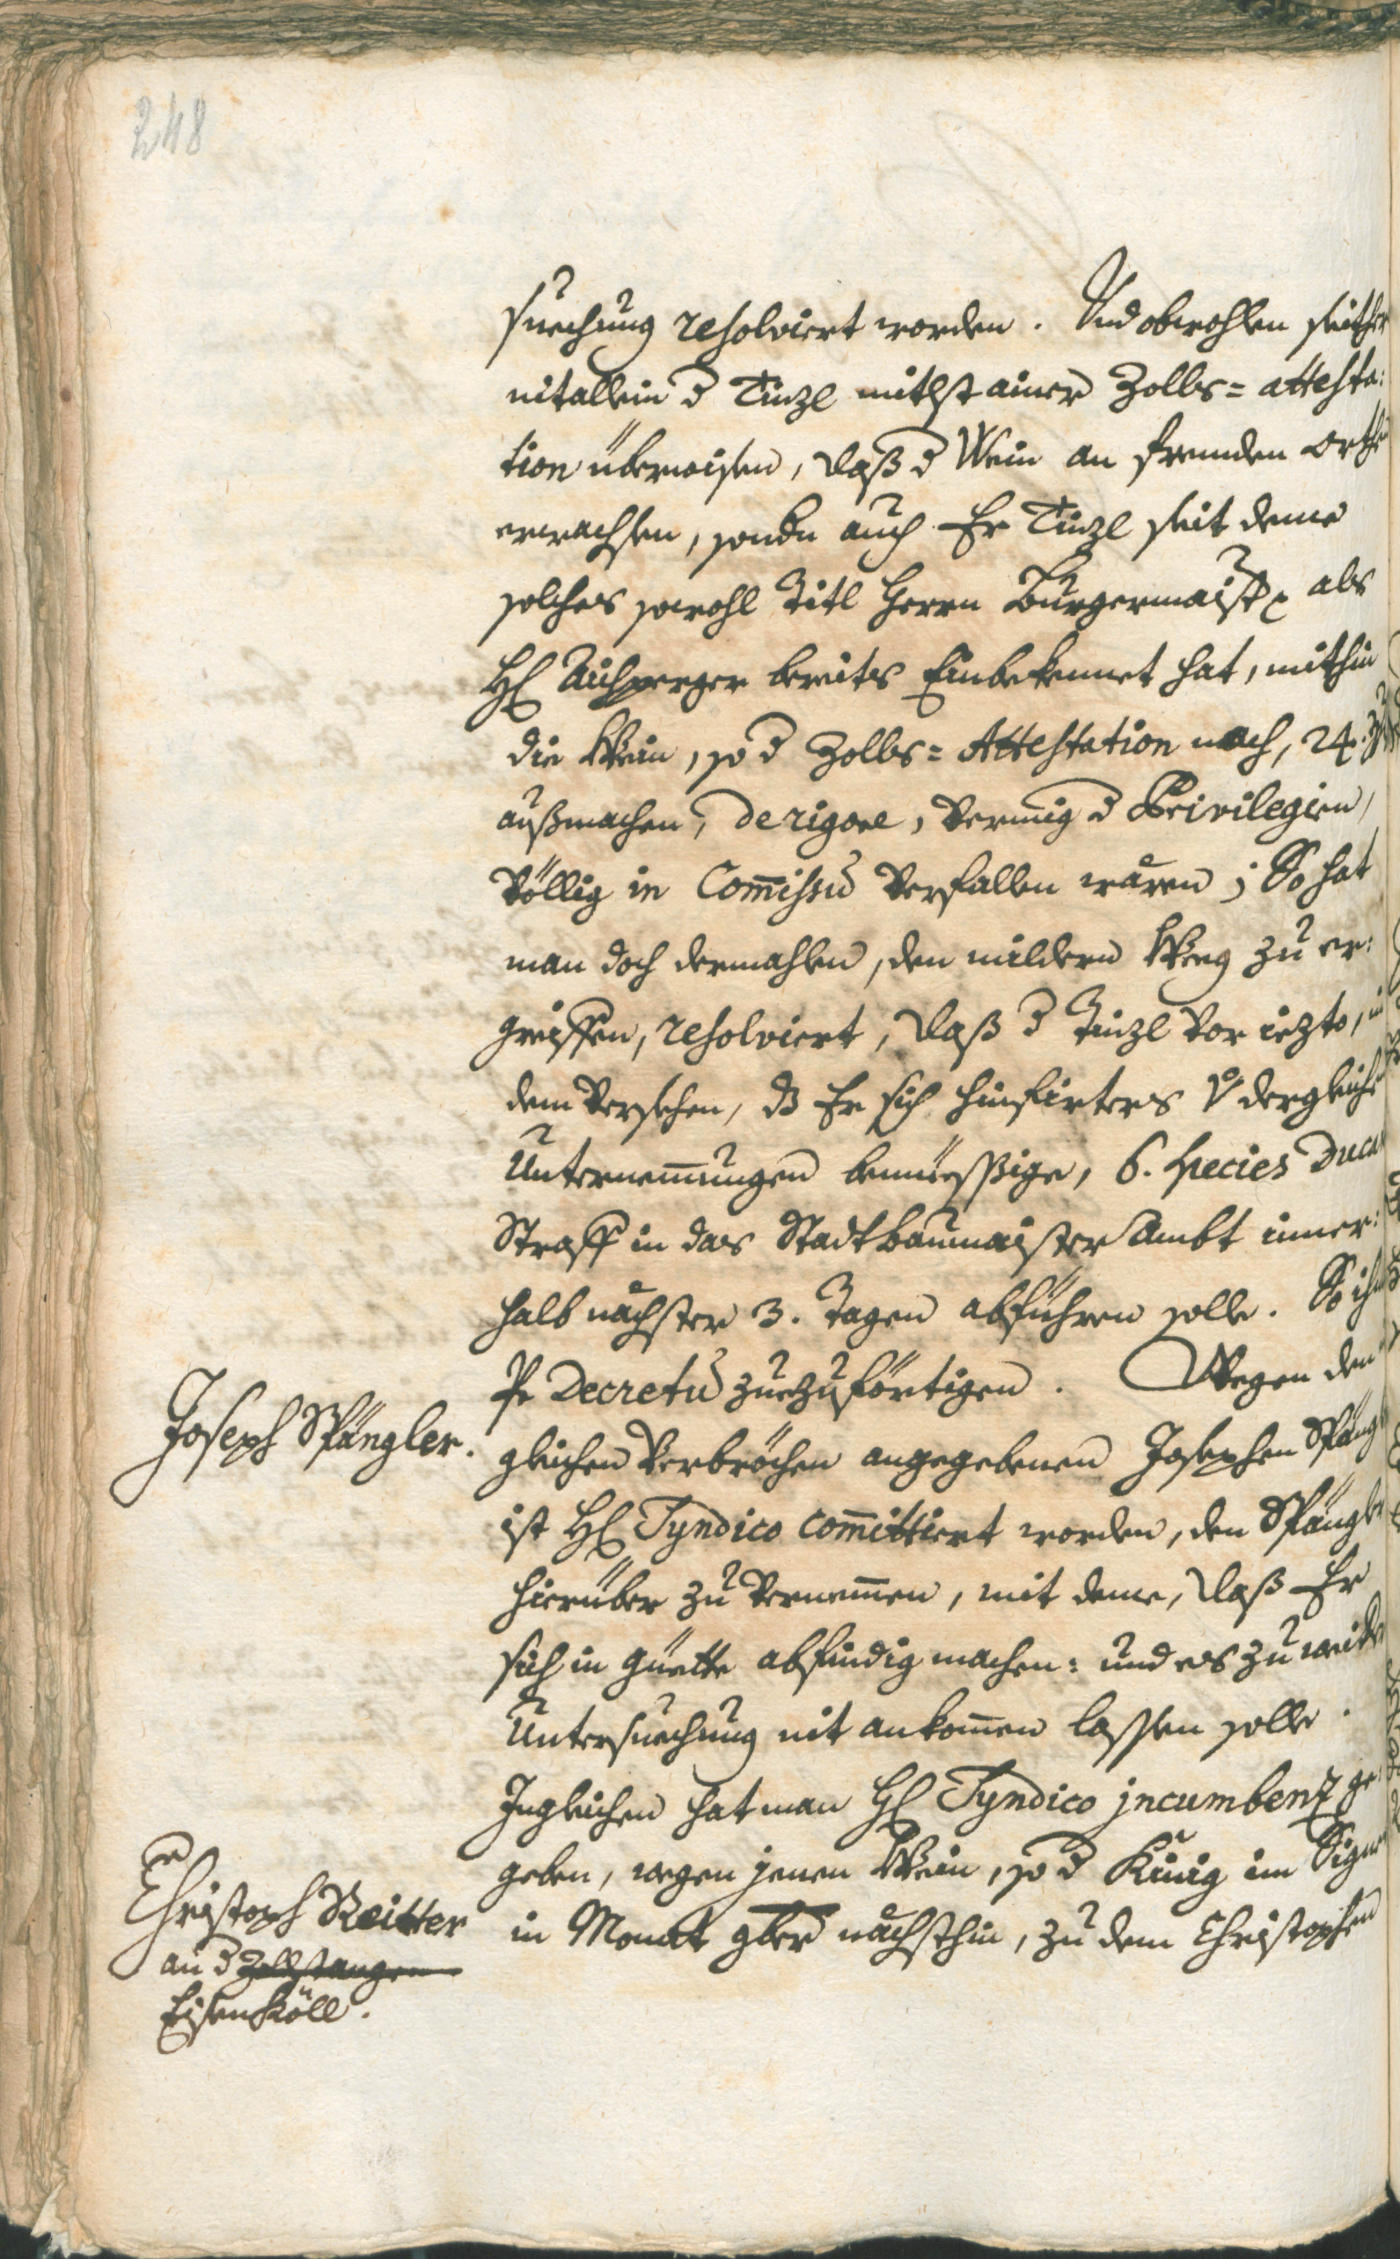 248
suechung resolviert worden. Und obwohlen seither
nit allein d Tinzl mitlst ainer Zolls= attesta:
tion überwisen, daß d Wein an frembden Orthe
erwachsen, sondn auch Er Tinzl seit deme
solches sowohl Titl Herrn Burgermaistr als
Hl Aichperger bereits Einbekennet hat, mithin
die Wein, so d Zolls= Attestation nach, 24.
außmachen, de rigore, vermüg d Privilegien,
völlig in Com̄issū verfallen wären; So hat
man doch dermahlen, den mildern Weeg zu er:
greiffen, resolviert, daß d Tinzl vor iezto,
dem versehen, dz Er sich hinfirters dergleiche
Unternem̄ungen bemüessige, 6. species Duca
Straff in das Stadtbaumaister Ambt inner:
halb nächster 3. Tagen abführen solle. So ihm
Pr Decretū zuezuförtigen. Wegen den
Joseph Spängler.
gleichen verbröchen angegebenen Josephen Spängl
ist Hl Syndico com̄ittiert worden, den Spängler
hierüber zu vernem̄en, mit deme, daß Er
sich in güette abfindig machen: und es zu weiter
Untersuechung nit ankom̄en lassen solle.
Ingleichen hat man Hl Syndico jncumbenz ge:
geben, wegen jenen Wein, so d Künig im
Christoph Reitter
an d Zollstangen
Eisenköll.
in Monat 9ber nächsthin, zu dem Christophen